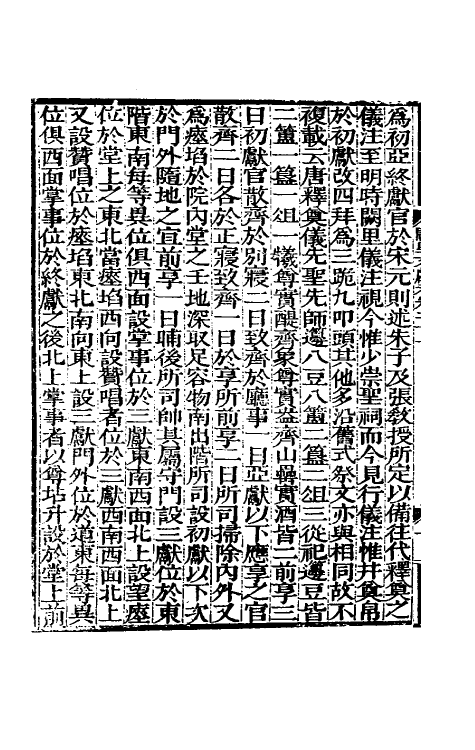 爲初亞終獻官於宋元則述朱子及張敎授所定以備往代釋奠之
儀注至明時闕里儀注視今惟少崇聖祠而今見行儀注惟幷奠帛
於初獻改四拜爲三跪九叩頭其他多沿舊式祭文亦與相同故不
複載云唐釋奠儀先聖先師籩八豆八簋二簠二俎三從祀籩豆皆
二簋一簠一俎一犧尊實醴齊象尊實盎齊山罍實酒皆二前享三
日初獻官散齊於別寢二日致齊於廳事一日亞獻以下應享之官
散齊二日各於正寢致齊一日於享所前享一日所司掃除內外又
爲瘞埳於院內堂之壬地深取足容物南出階所司設初獻以下次
於門外隨地之宜前享一日晡後所司帥其屬守門設三獻位於東
階東南每等異位俱西面設掌事位於三獻東南西面北上設望瘞
位於堂上之東北當瘞埳西向設贊唱者位於三獻西南西面北上
又設贊唱位於瘞埳東北南向東上設三獻門外位於道東每等異
位俱西面掌事位於終獻之後北上掌事者以尊坫升設於堂上前